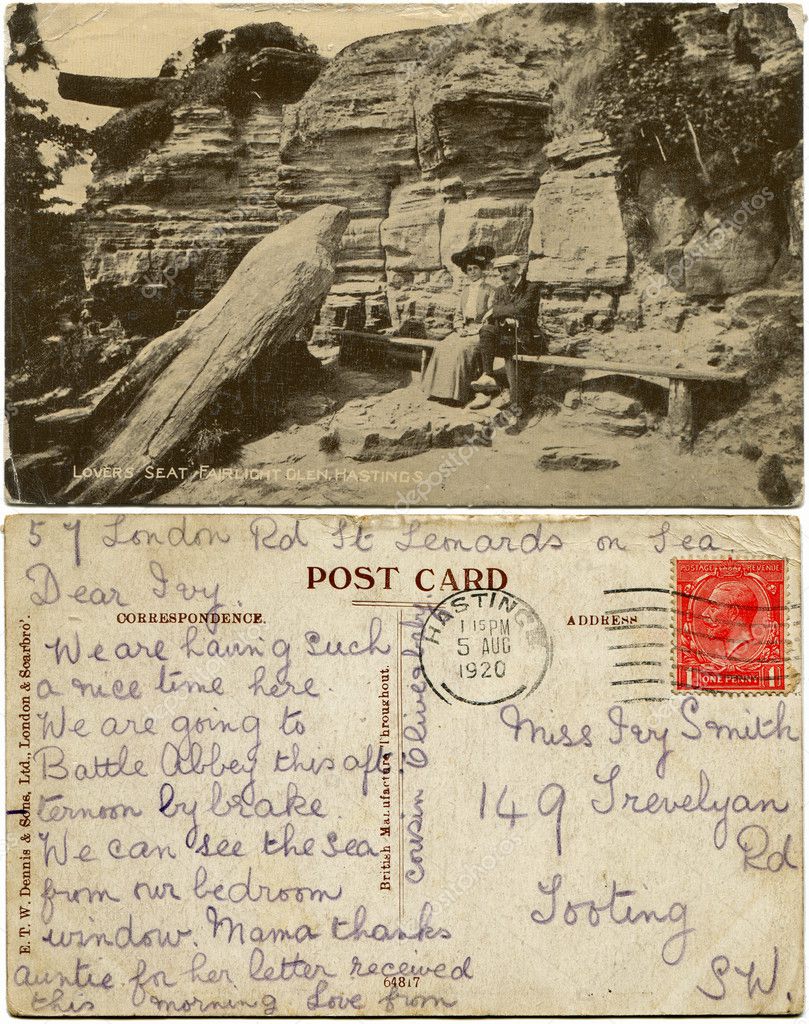 LOVERS SEAT, FAIRLIGHT GLEN, HASTINGS
57 London Rd St Leonards on Sea
Dear Ivy
POST CARD
CORRESPONDENCE.
ADDRESS
We are having such
a nice time here.
We are going to
Battle Abbey this aft
ternoon by brake.
We can see the sea
from our bedroom
window. Mama thanks
auntie for her letter received
this morning Love from
cousin Olive
HASTINGS
1 15 PM
5 AUG
1920
POSTAGE REVENUE
ONE PENNY
1 1
Miss Ivy Smith
149 Trevelyan
Rd
Tooting
S.W.
E. T. W. Dennis & Sons, Ltd., London & Scarbro'.
British Manufacture Throughout.
64817
depositphotos